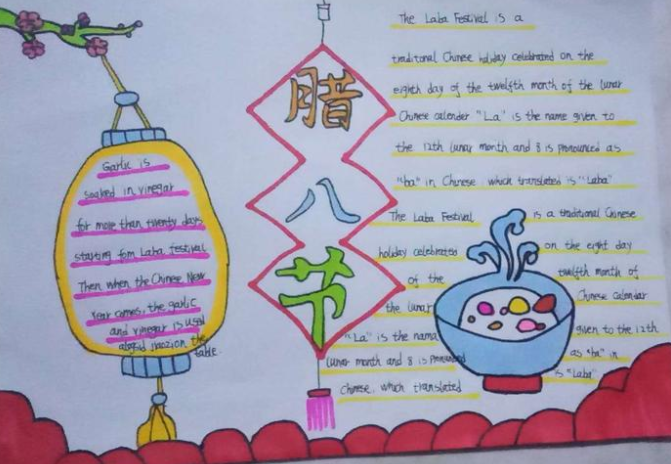 Garlic is
soaked in vinegar
for more than twenty days
starting fom Laba festival
Then when the Chinese New
Year comes, the garlic
and vinegar is used
the
table.
腊
八
节
The Laba Festival is a
traditonal Chinese holiday celebrated on the
eighth day of the twelfth month of the lunar
Chinese calender "La" is the name given to
the 12th lunar month and 8 is pronounced as
"ba" in Chinese, which translated is "Laba"
The Laba Festival is a traditional Chinese
holiday celebrated on the eight day
of the twelfth month of
the lunar Chinese Calendar
"La" is the name given to the 12th
lunar month and 8 is pronounced as "ba" in
Chinese, which translated is "Laba"